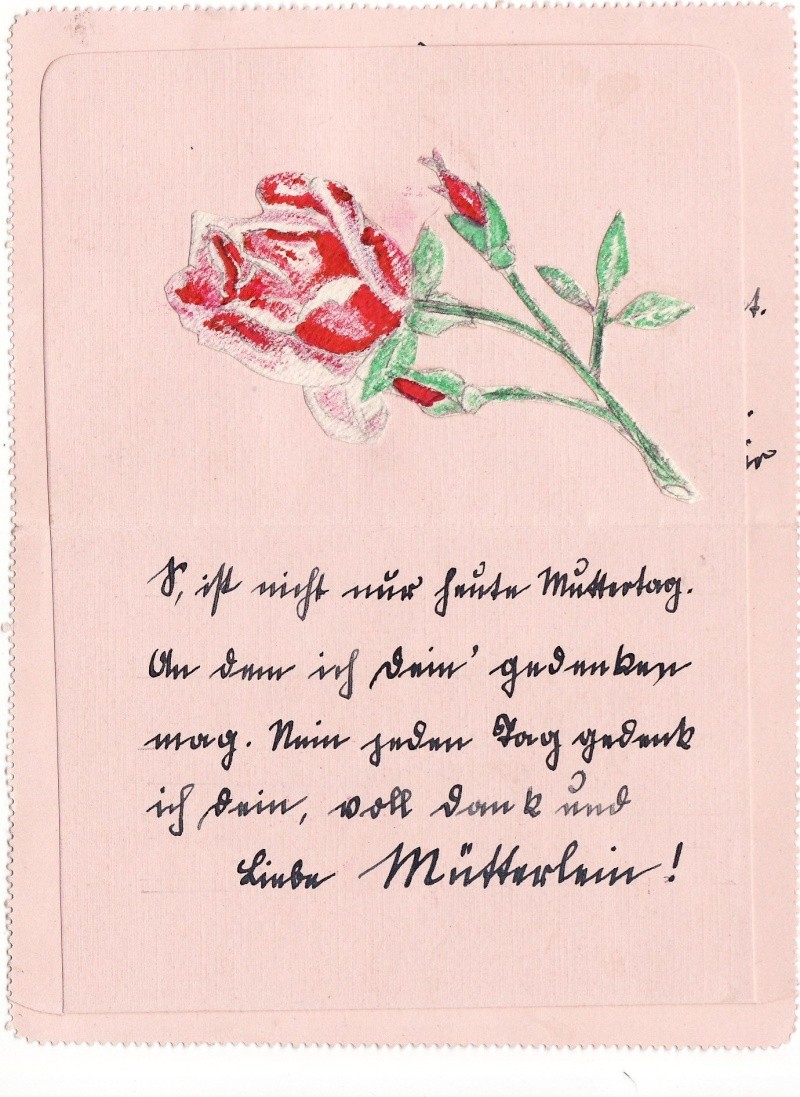 S, ist nicht nur heute Muttertag.
An dem ich dein' gedenken
mag. Nein jeden Tag gedenk
ich dein, voll dank und
Liebe Mütterlein!